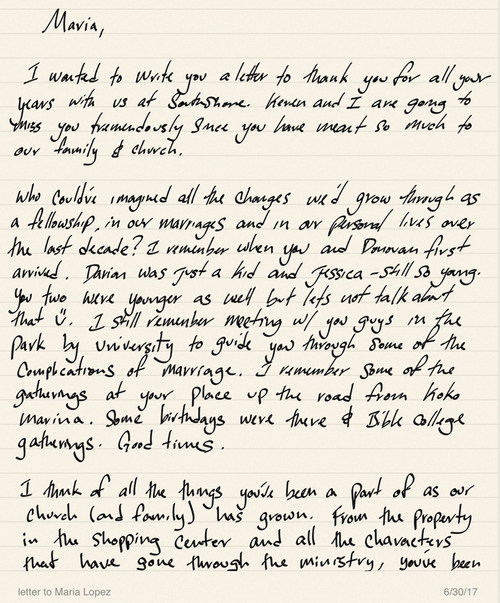 Maria,
I wanted to write you a letter to thank you for all your
years with us at Southshore. Keven and I are going to
miss you tremendously since you have meant so much to
our family & church.
Who could've imagined all the changes we'd grow through as
a fellowship, in our marriages and in our personal lives over
the last decade? I remember when you and Donovan first
arrived. Darian was just a kid and Jessica - still so young.
You two were younger as well but lets not talk about
that ü. I still remember meeting w/ you guys in the
park by university to guide you through some of the
complications of marriage. I remember some of the
gatherings at your place up the road from Koko
marina. Some birthdays were there & Bible College
gatherings. Good times.
I think of all the things you've been a part of as our
church (and family) has grown. From the property
in the shopping center and all the characters
that have gone through the ministry, you've been
letter to Maria Lopez
6/30/17